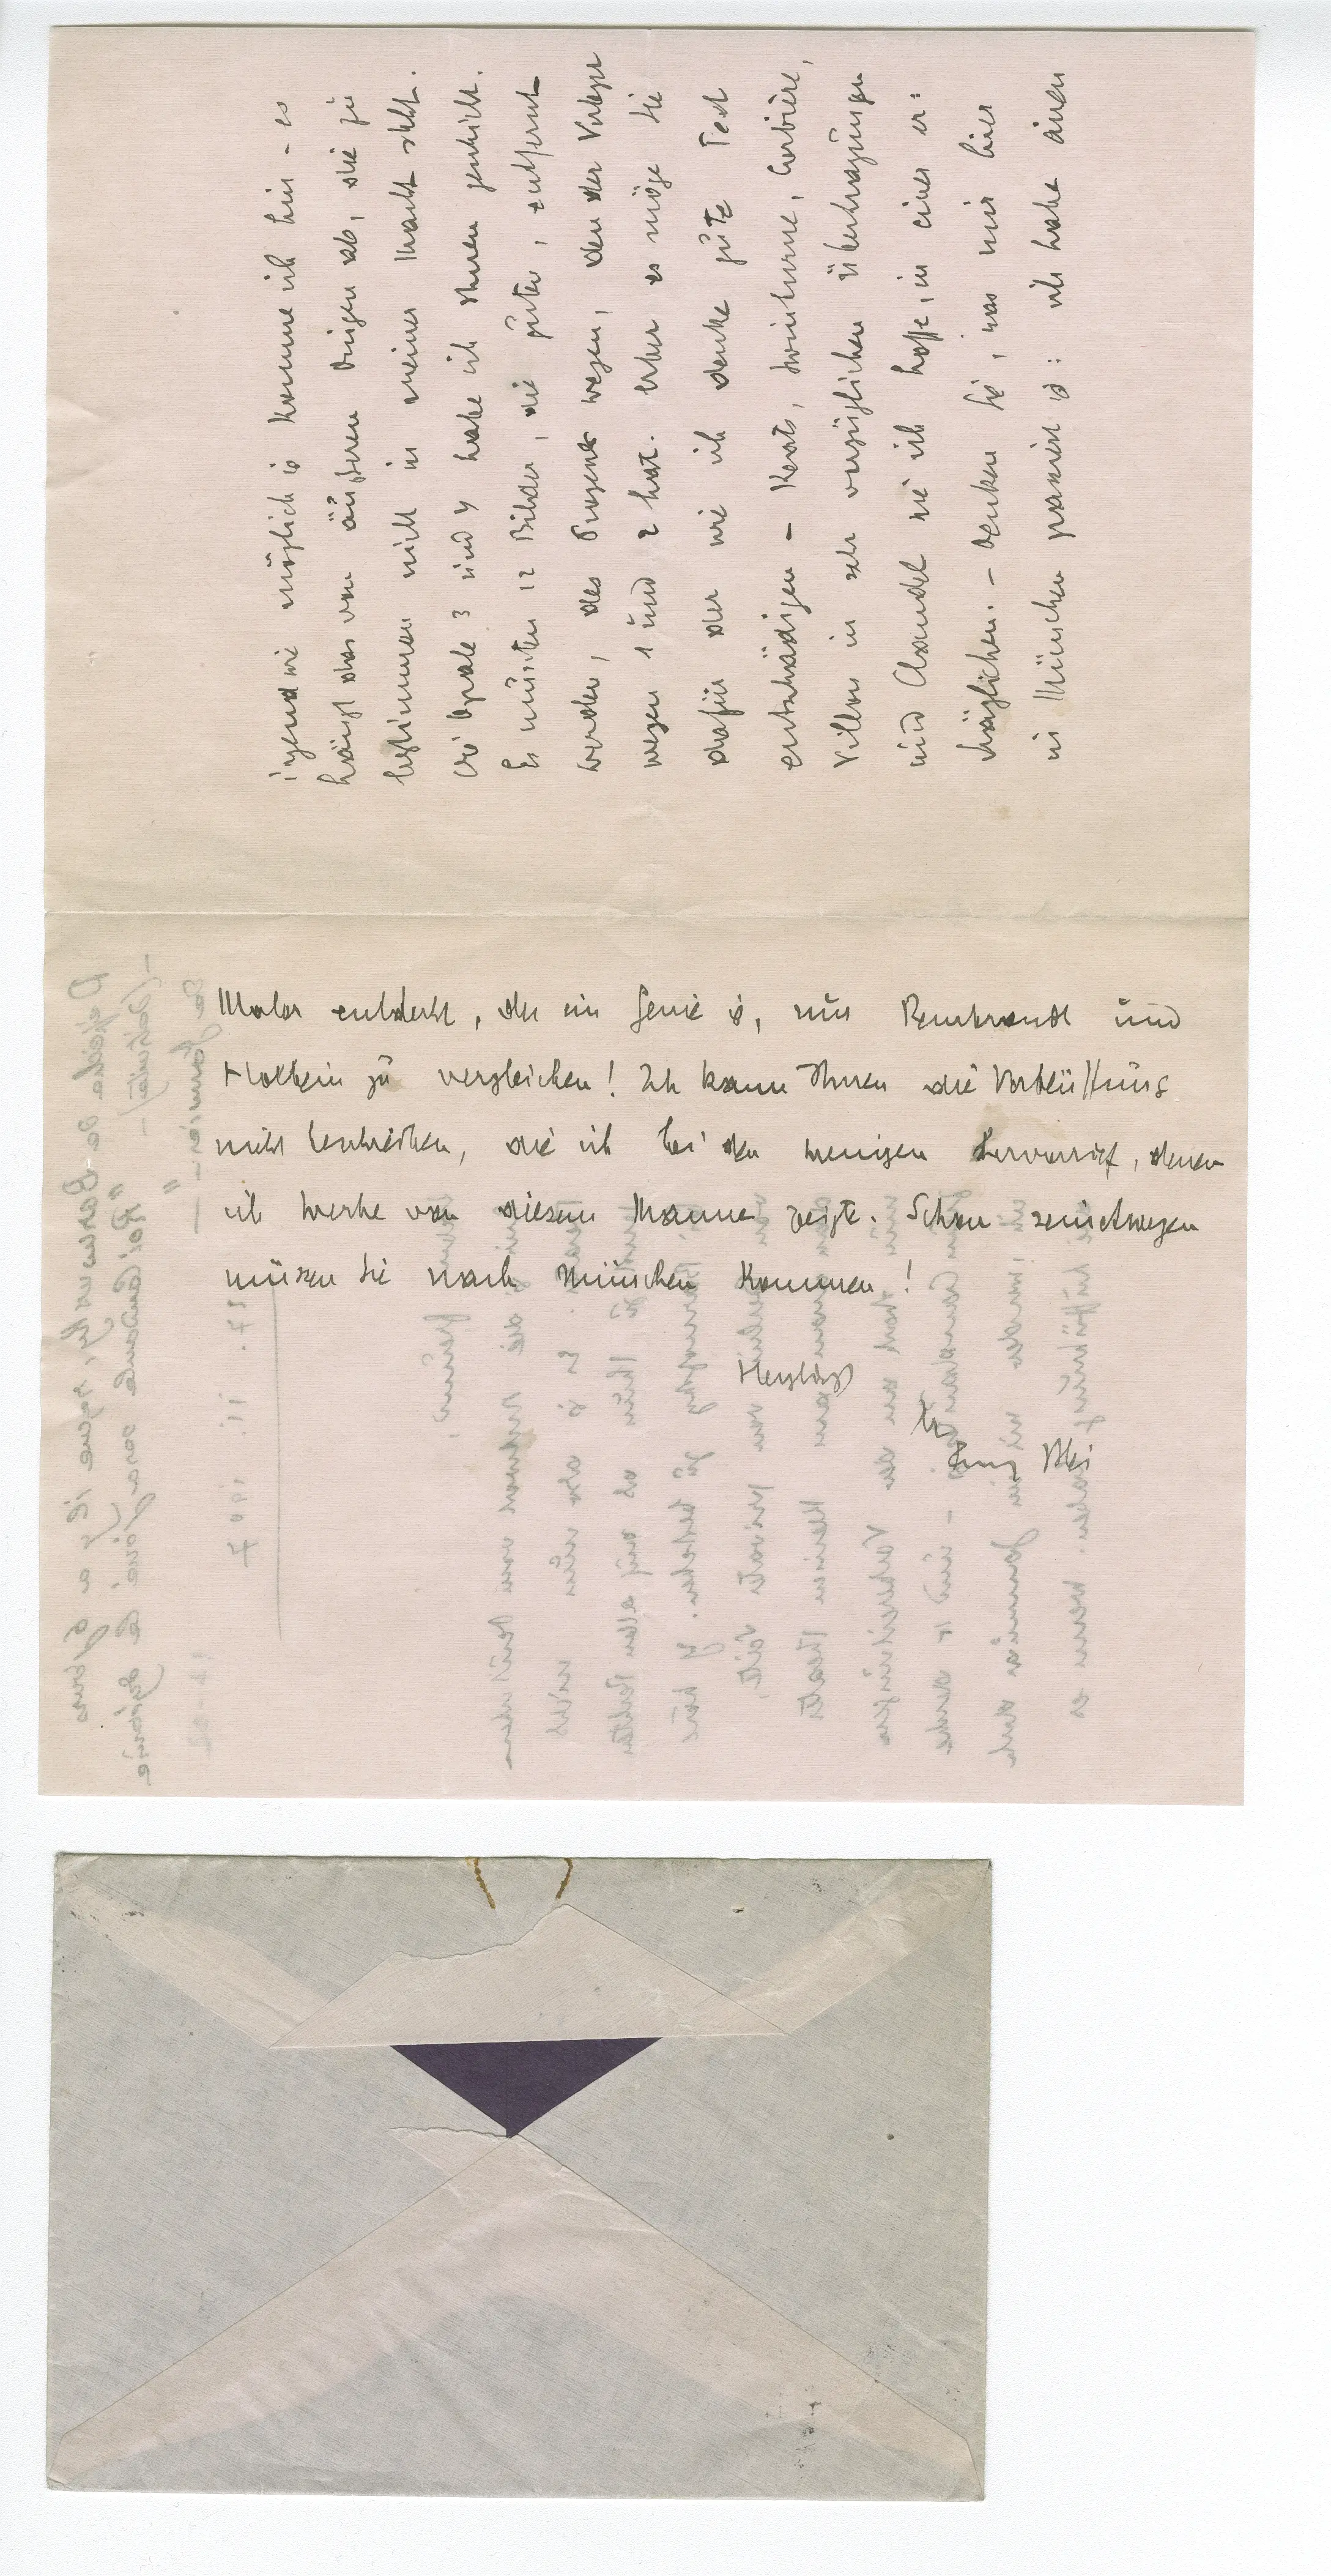 irgend wie möglich is komme ich hin – es
hängt aber von äusseren Dingen ab, die zu
bestimmen nicht in meiner Macht steht.
Die Opale 3 und 4 habe ich Ihnen geschickt.
Es müssten 12 Bilder, die guten, entfernt
werden, des Prozesses wegen, den der Verleger
wegen 1 und 2 hat. Aber es möge Sie
dafür der wie ich denke gute Text
entschädigen – Keats, Swinburne, Corbière,
Villon in sehr vorzüglichen Übertragungen
und Claudel wie ich hoffe, in einer er=
träglichen. – Denken Sie, was mir hier
in München passiert is: ich habe einen
Maler entdeckt, der ein Genie is, nur Rembrandt und
Holbein zu vergleichen! Ich kann Ihnen die Verblüffung
nicht beschreiben, die ich bei den wenigen hervorrief, denen
ich Werke von diesem Manne zeigte. Schon seinetwegen
müssen Sie nach München kommen!
Herzlichst
Ihr
Franz Blei